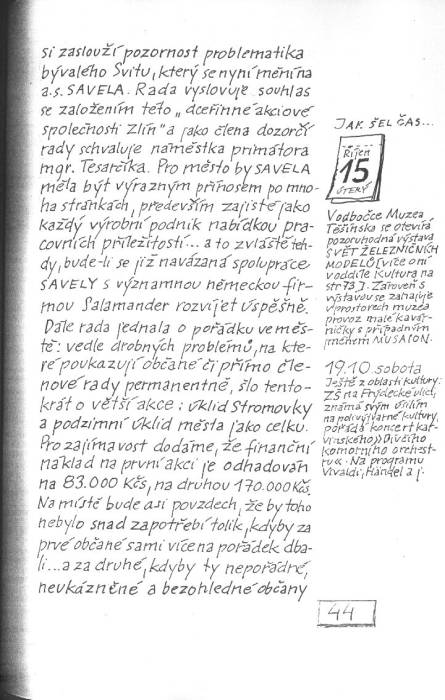 si zaslouží pozornost problematika
bývalého Svitu, který se nyní mění na
a.s. SAVELA. Rada vyslovuje souhlas
se založením této „dceřinné akciové
společnosti Zlín" a jako člena dozorčí
rady schvaluje náměstka primátora
mgr. Tesarčíka. Pro město by SAVELA
měla být výrazným přínosem po mno-
ha stránkách, především zajistě jako
každý výrobní podnik nabídkou pra-
covních příležitostí... a to zvláště teh-
dy, bude-li se již navázaná spolupráce
SAVELY s významnou německou fir-
mou Salamander rozvíjet úspěšně.
Dále rada jednala o pořádku ve měs-
tě: vedle drobných problémů, na kte-
ré poukazují občané či přímo čle-
nové rady permanentně, šlo tento-
krát o větší akce: úklid Stromovky
a podzimní úklid města jako celku.
Pro zajímavost dodáme, že finanční
náklad na první akci je odhadován
na 83.000 Kčs, na druhou 170.000 Kčs.
Na místě bude asi povzdech, že by toho
nebylo snad zapotřebí tolik, kdyby za
prvé občané sami více na pořádek dba-
li...a za druhé, kdyby ty nepořádné,
neukázněné a bezohledné občany
JAK ŠEL ČAS...
Říjen
15
ÚTERÝ
V odbočce Muzea
Těšínska se otevírá
pozoruhodná výstava
SVĚT ŽELEZNIČNÍCH
MODELŮ (více o ní
v oddíle Kultura na
str 73). Zároveň s
výstavou se zahajuje
v prostorech muzea
provoz malé kavár-
ničky s případným
jménem MUSAION.
19.10. sobota
Ještě z oblasti kultury:
ZŠ na Frýdecké ulici,
známá svým úsilím
na poli výtvarné kultury,
pořádá koncert kat-
vinského »Dívčího
komorního orchest-
ru«. Na programu
Vivaldi, Händel a j.
44